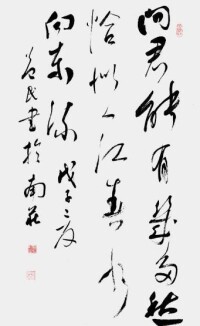 问君能有几多愁
恰似一江春水
向东流 戊子之夏
益民书于南庄